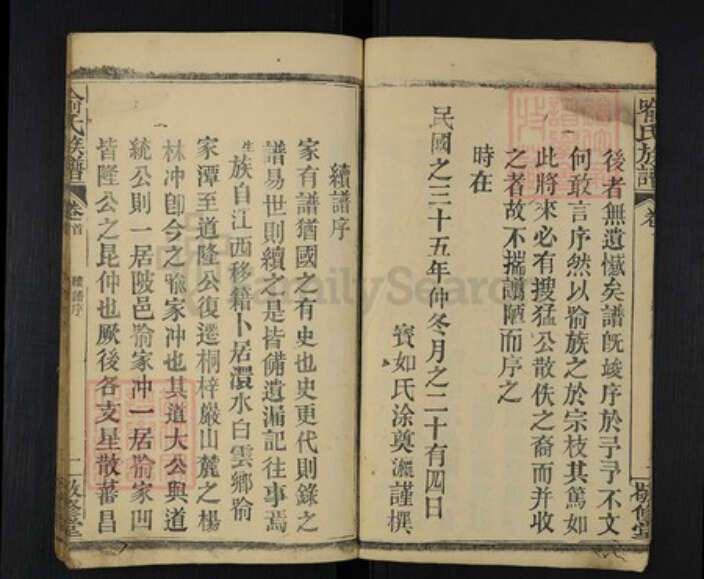 喻氏族譜
卷
敬修堂
後者無遺憾矣譜旣竣序於予予不文
何敢言序然以喻族之於宗枝其篤如
此將來必有搜猛公散佚之裔而并收
之者故不揣譾陋而序之
時在
民國之三十五年仲冬月之二十有四日
賓如氏涂奠瀛謹撰
續譜序
家有譜猶國之有史也史更代則錄之
譜易世則續之是皆備遺漏記往事焉
生族自江西移籍卜居澴水白雲鄉喻
家潭至道隆公復遷桐梓嚴山麓之楊
林冲卽今之喻家冲也其道大公與道
統公則一居陂邑喻家冲一居喻家凹
皆隆公之昆仲也厥後各支星散蕃昌
喻氏族譜
卷首
續譜序
一
敬修堂
FamilySearch